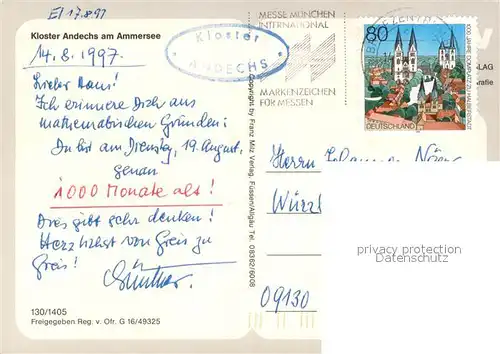 EI 17.8.97
Kloster Andechs am Ammersee
14.8.1997.
Lieber Hans!
Ich erinnere Dich aus
mathematischen Gründen:
Du bist am Dienstag, 19. August,
genau
1000 Monate alt!
Dies gibt sehr zu denken!
Herzlichst von Greis zu
Greis!
Günther.
130/1405
Freigegeben Reg. v. Ofr. G 16/49325
Kloster
ANDECHS
MESSE MÜNCHEN
INTERNATIONAL
MARKENZEICHEN
FÜR MESSEN
80
1000 JAHRE DOMPLATZ ZU HALBERSTADT
DEUTSCHLAND
BRIEFZENTR
LAG
rafie
Copyright by Franz Milz Verlag, Füssen/Allgäu Tel. 08362/6008
Herrn
Würz
09130
privacy protection
Datenschutz